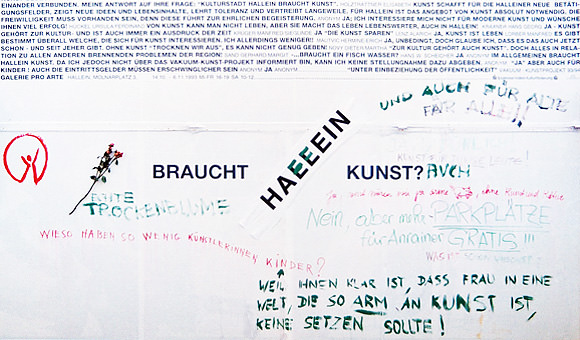 EINANDER VERBINDEN. MEINE ANTWORT AUF IHRE FRAGE: "KULTURSTADT HALLEIN BRAUCHT KUNST". KUNST SCHAFFT FÜR DIE HALLEINER NEUE BETÄTI-
GUNGSFELDER, ZEIGT NEUE IDEEN UND LEBENSINHALTE, LEHRT TOLERANZ UND VERTREIBT LANGEWEILE. FÜR HALLEIN
FREIWILLIGKEIT MUSS VORHANDEN SEIN, DENN DIESE FÜHRT ZUR EHRLICHEN BEGEISTERUNG. JA; ICH INTERESSIERE MICH NICHT FÜR MODERNE KUNST UND WÜNSCHE
IHNEN VIEL GLÜCK! VON KUNST KANN MAN NICHT LEBEN, ABER SIE MACHT DAS LEBEN LEBENSWERTER, AUCH IN HALLEIN! JA. KUNST
GEHÖRT ZUR KULTUR- UND IST AUCH IMMER EIN AUSDRUCK DER ZEIT JA "DIE KUNST SPAREN" JA, KUNST IST LEBEN ES GIBT
BESTIMMT ÜBERALL WELCHE, DIE SICH FÜR KUNST INTERESSIEREN. ICH ALLERDINGS WENIGER! JA, UNBEDINGT. DOCH GLAUBE ICH, DASS ES DAS AUCH JETZT
SCHON - UND SEIT JEHER GIBT. OHNE KUNST "TROCKNEN WIR AUS", ES KANN NICHT GENUG GEBEN! "ZUR KULTUR GEHÖRT AUCH KUNST". DOCH ALLES IN RELA-
TION ZU ALLEN ANDEREN BRENNENDEN PROBLEMEN DER REGION! IM ALLGEMEINEN BRAUCHT
HALLEIN KUNST. DA ICH JEDOCH NICHT ÜBER DAS VAKUUM KUNST-PROJEKT INFORMIERT BIN, KANN ICH KEINE STELLUNGNAHME DAZU ABGEBEN. "JA" ABER AUCH FÜR
KINDER! AUCH DIE EINTRITTSGELDER MÜSSEN ERSCHWINGLICHER SEIN JA "UNTER EINBEZIEHUNG DER ÖFFENTLICHKEIT"
GALERIE PRO ARTE
UND AUCH FÜR ALTE
FAIR ALLE!!
BRAUCHT HAEEEIN KUNST? AUCH
ECHTE
TROCKENBLUME
Nein, aber mehr PARKPLÄTZE
für Anrainer GRATIS!!!
WIESO HABEN SO WENIG KÜNSTLERINNEN KINDER?
WEIL IHNEN KLAR IST, DASS FRAU IN EINE
WELT, DIE SO ARM AN KUNST IST,
KEINE SETZEN SOLLTE!